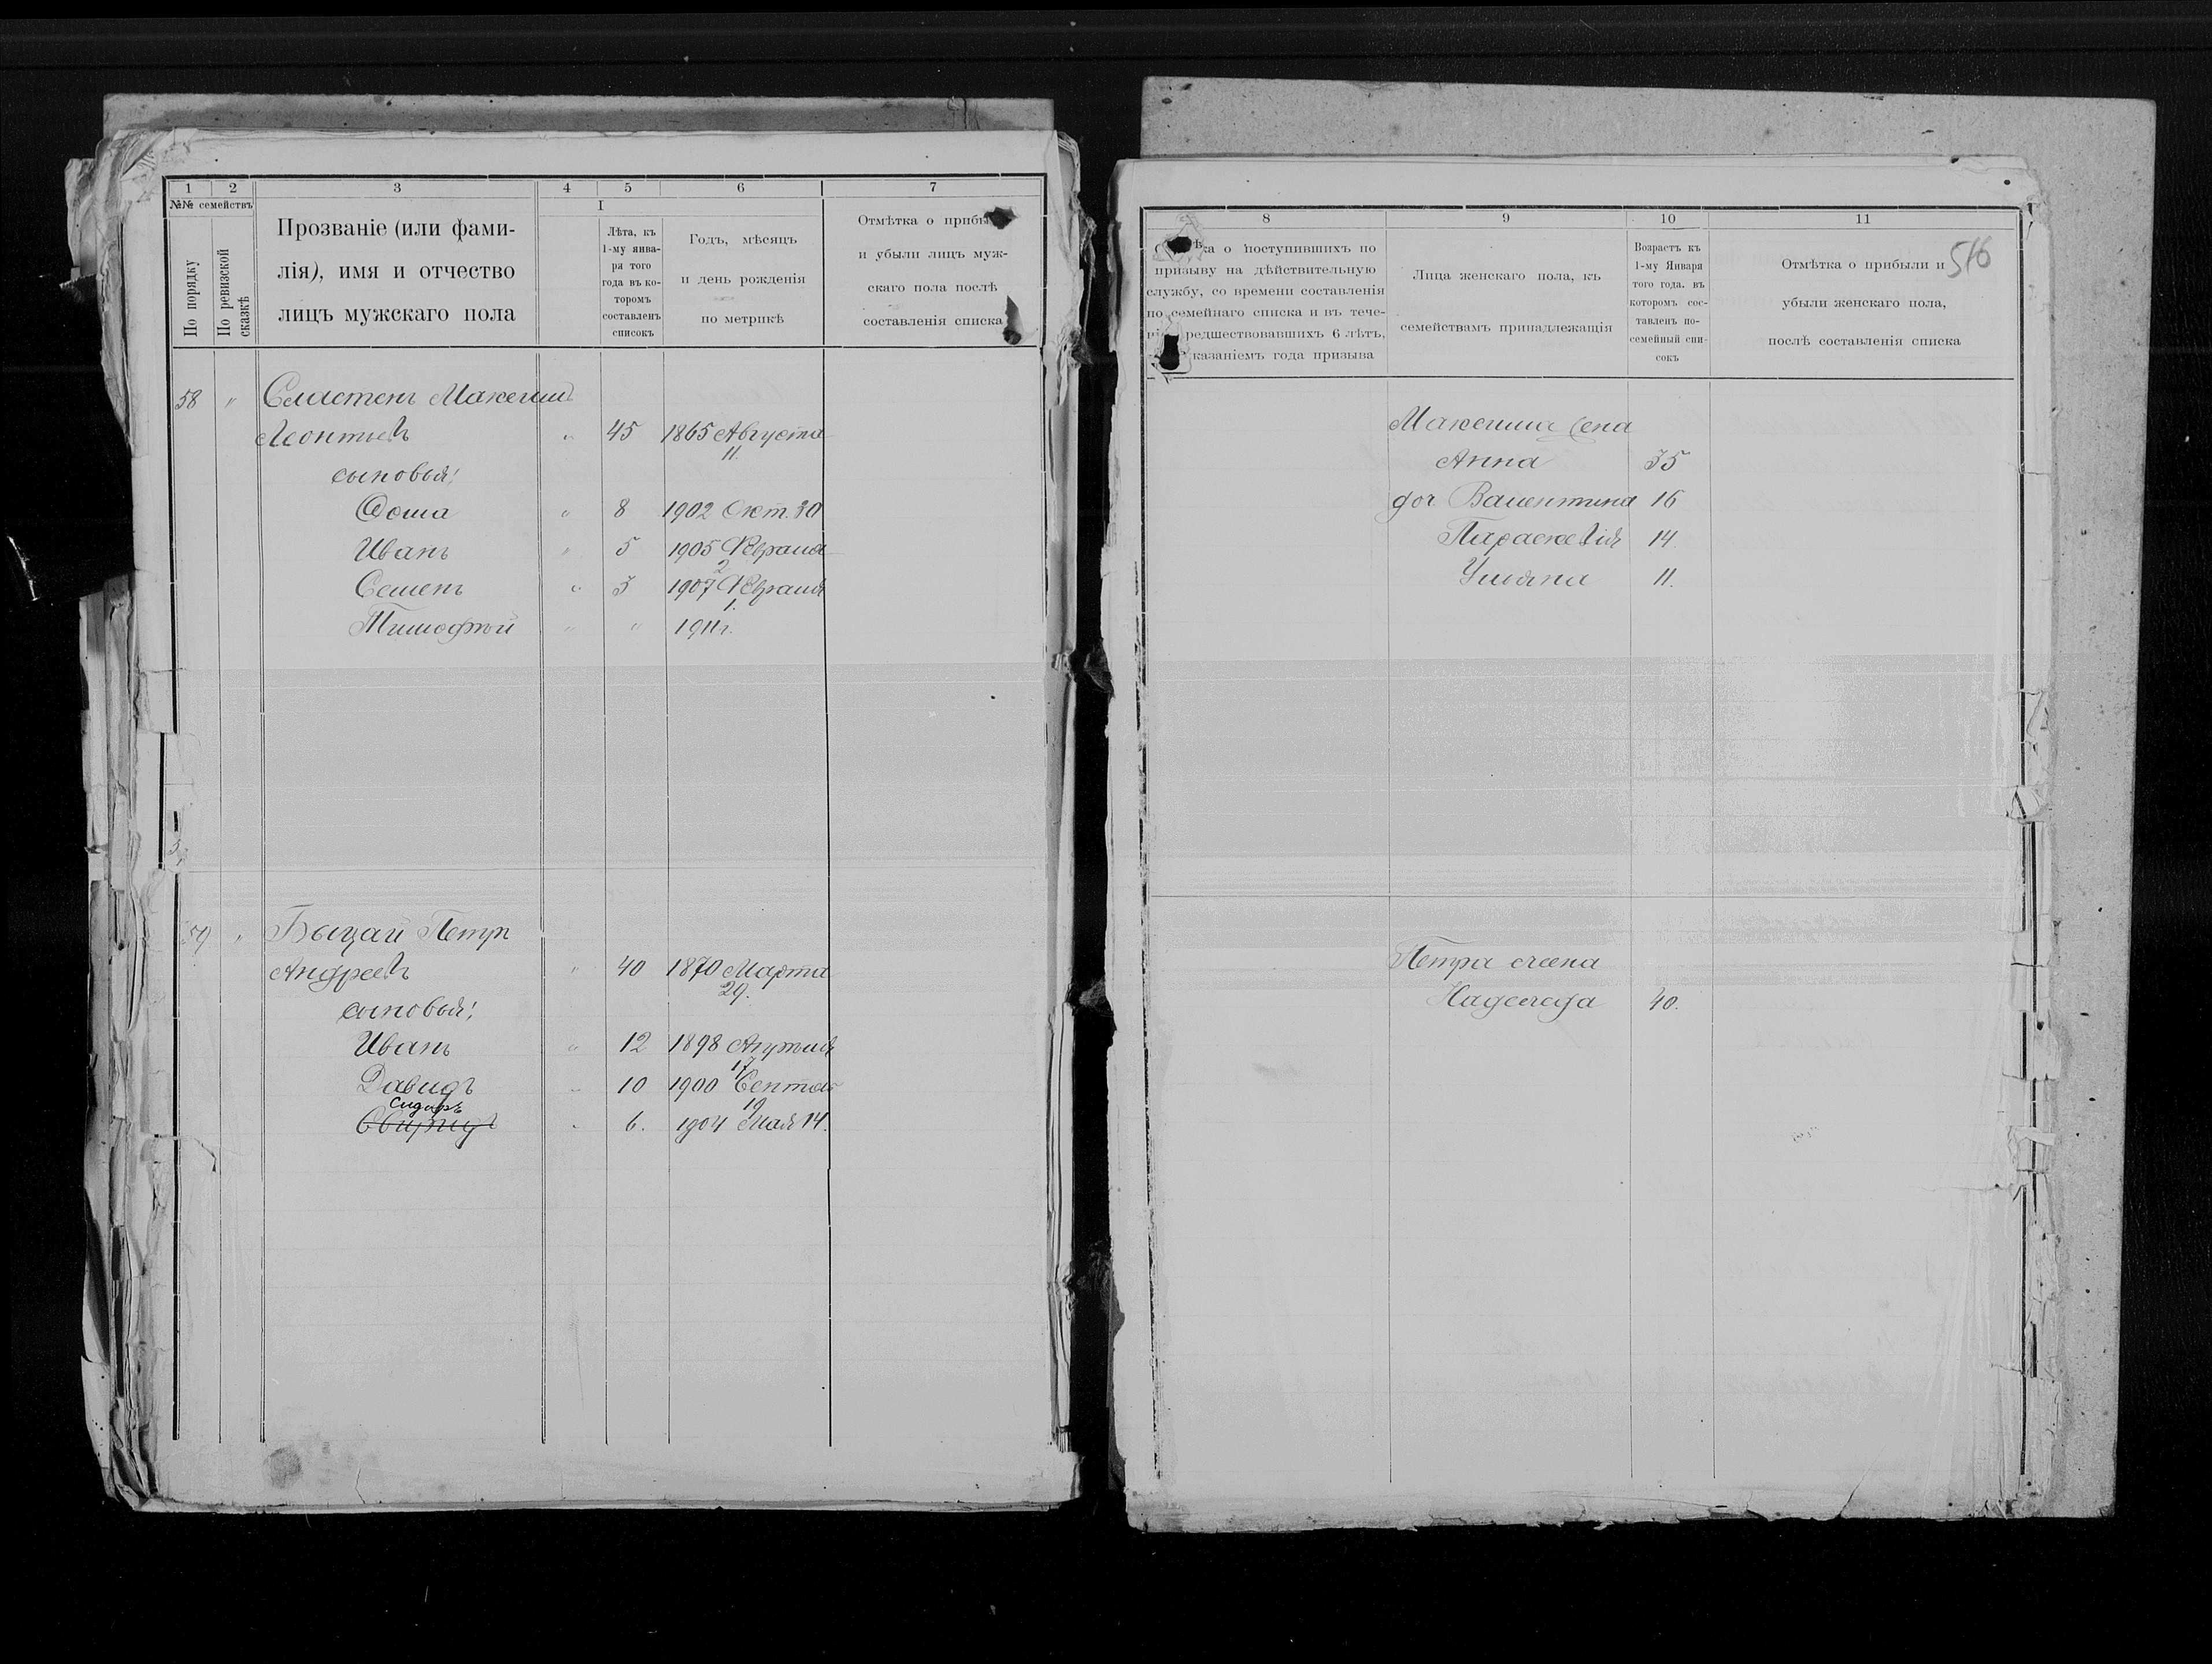 1 2 3 4 5 6 7
№№ семействъ
По порядку
По ревизской сказкѣ
Прозваніе (или фами-
лія), имя и отчество
лицъ мужскаго пола
I
Лѣта, къ
1-му янва-
ря того
года въ ко-
торомъ
составленъ
списокъ
Годъ, мѣсяцъ
и день рожденія
по метрикѣ
Отмѣтка о прибы
и убыли лицъ муж-
скаго пола послѣ
составленія списка
58 " Сластенъ Максимъ
Леонтьевъ " 45 1865 Августа
11.
сыновья:
Фома " 8 1902 Окт. 30
Иванъ " 5 1905 Февраля
2
Семенъ " 3 1907 Февраля
1.
Тимофѣй " " 1911 г.
59 " Быцай Петръ
Андреевъ " 40 1870 Марта
29.
сыновья:
Иванъ " 12 1898 Апрѣля
17
Давидъ " 10 1900 Сентяб
19
Сидоръ
" 6. 1904 Мая 14.
8 9 10 11
516
ка о поступившихъ по
призыву на дѣйствительную
службу, со времени составленія
по семейнаго списка и въ тече-
редшествовавшихъ 6 лѣтъ,
казаніемъ года призыва
Лица женскаго пола, къ
семействамъ принадлежащія
Возрастъ къ
1-му Января
того года, въ
которомъ сос-
тавленъ по-
семейный спи-
сокъ
Отмѣтка о прибыли и
убыли женскаго пола,
послѣ составленія списка
Максима жена
Анна 35
доч Валентина 16
Параскевія 14
Ульяна 11.
Петра жена
Надежда 40.